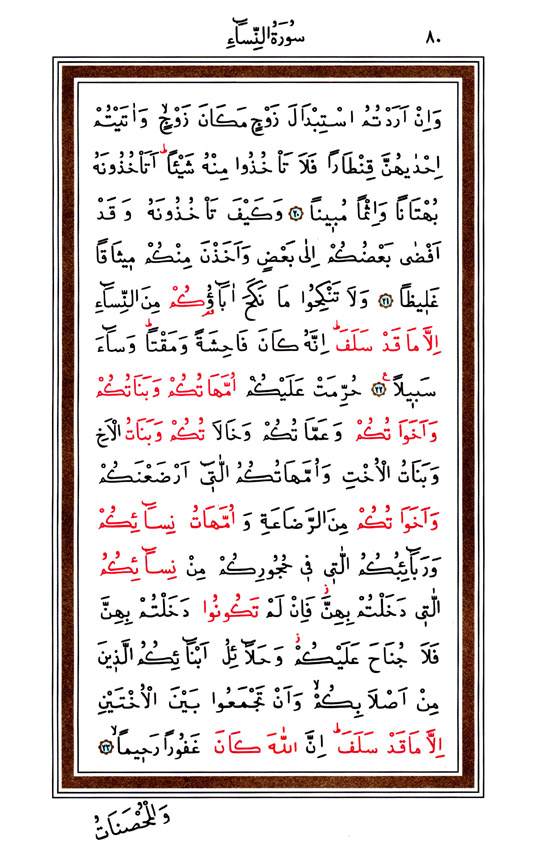 ٨٠ سُورَةُ النِّسَٓاءِ
وَاِنْ اَرَدْتُمُ اسْتِبْدَالَ زَوْجٍ مَكَانَ زَوْجٍۙ وَاٰتَيْتُمْ
اِحْدٰيهُنَّ قِنْطَاراً فَلَا تَأْخُذُوا مِنْهُ شَيْـٔاًۜ اَتَأْخُذُونَهُ
بُهْتَاناً وَاِثْماً مُب۪يناً ﴿٢٠﴾ وَكَيْفَ تَأْخُذُونَهُ وَقَدْ
اَفْضٰى بَعْضُكُمْ اِلٰى بَعْضٍ وَاَخَذْنَ مِنْكُمْ م۪يثَاقاً
غَل۪يظاً ﴿٢١﴾ وَلَا تَنْكِحُوا مَا نَكَحَ اٰبَٓاؤُ۬كُمْ مِنَ النِّسَٓاءِ
اِلَّا مَا قَدْ سَلَفَۜ اِنَّهُ كَانَ فَاحِشَةً وَمَقْتاًۜ وَسَٓاءَ
سَب۪يلاً۟ ﴿٢٢﴾ حُرِّمَتْ عَلَيْكُمْ اُمَّهَاتُكُمْ وَبَنَاتُكُمْ
وَاَخَوَاتُكُمْ وَعَمَّاتُكُمْ وَخَالَاتُكُمْ وَبَنَاتُ الْاَخِ
وَبَنَاتُ الْاُخْتِ وَاُمَّهَاتُكُمُ الّٰت۪ٓي اَرْضَعْنَكُمْ
وَاَخَوَاتُكُمْ مِنَ الرَّضَاعَةِ وَاُمَّهَاتُ نِسَٓائِكُمْ
وَرَبَٓائِبُكُمُ الّٰت۪ي ف۪ي حُجُورِكُمْ مِنْ نِسَٓائِكُمُ
الّٰت۪ي دَخَلْتُمْ بِهِنَّۘ فَاِنْ لَمْ تَكُونُوا دَخَلْتُمْ بِهِنَّ
فَلَا جُنَاحَ عَلَيْكُمْۘ وَحَلَٓائِلُ اَبْنَٓائِكُمُ الَّذ۪ينَ
مِنْ اَصْلَابِكُمْۙ وَاَنْ تَجْمَعُوا بَيْنَ الْاُخْتَيْنِ
اِلَّا مَا قَدْ سَلَفَۜ اِنَّ اللّٰهَ كَانَ غَفُوراً رَح۪يماًۙ ﴿٢٣﴾
وَالْمُحْصَنَاتُ